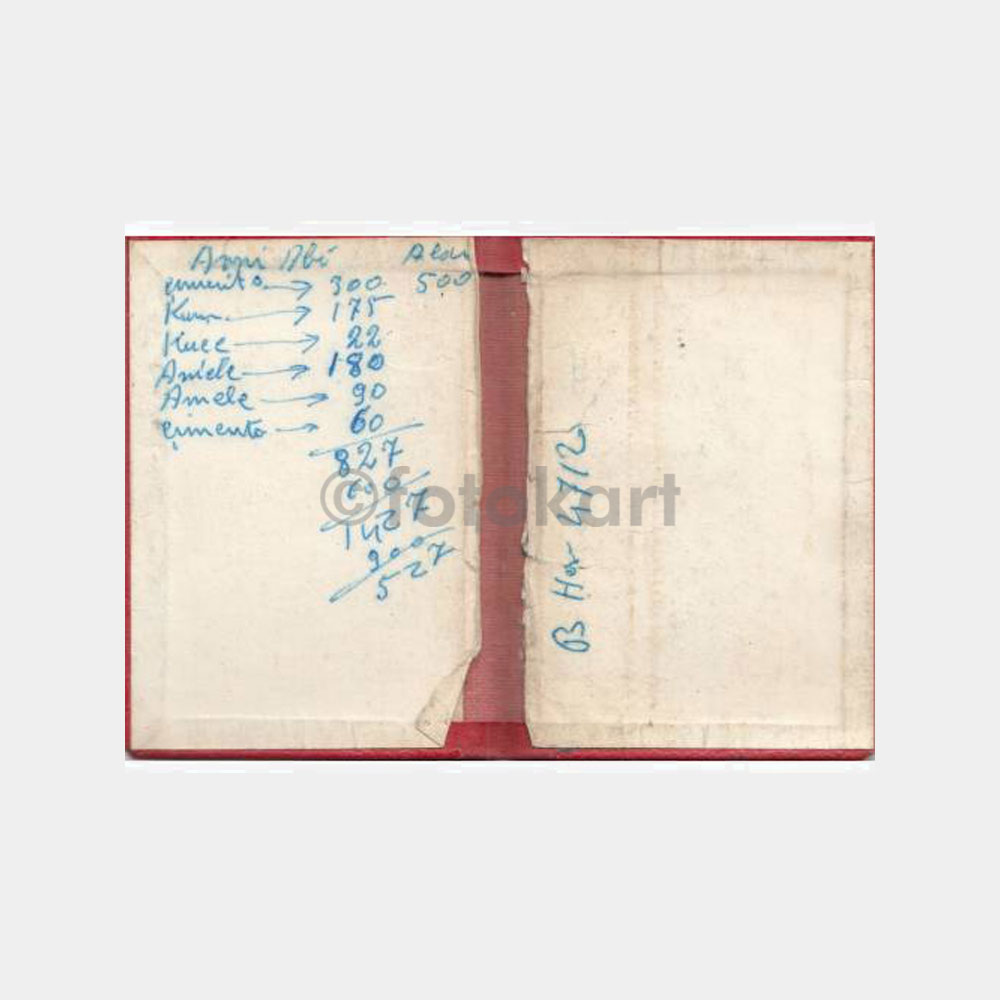 Abi Aldı
çimento → 300 500
Kum → 175
→ 22
Amele → 180
Amele → 90
çimento → 60
827
600
1427
900
527
B Har 4712
©fotokart